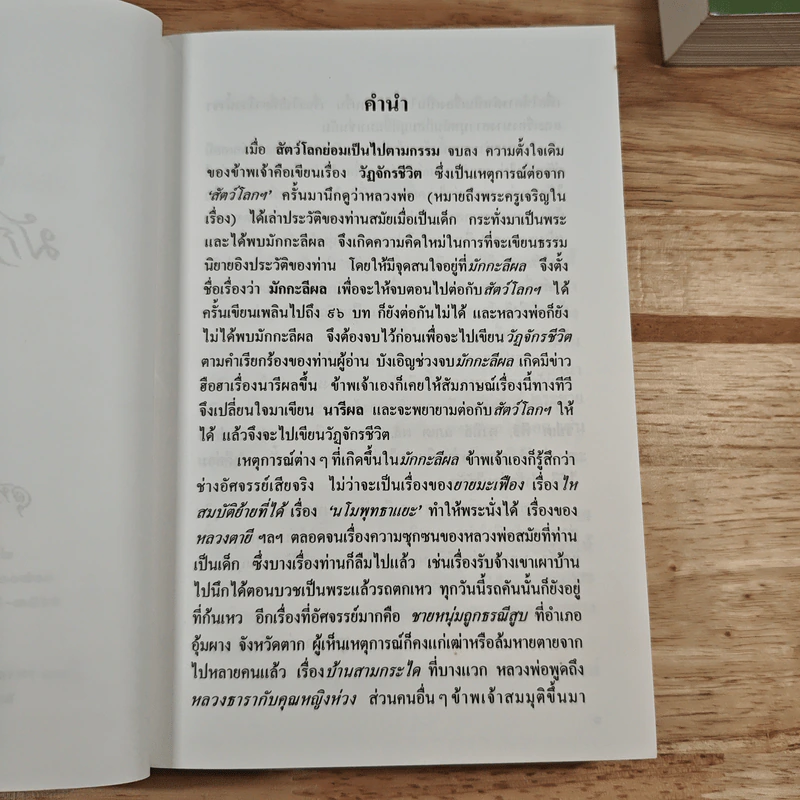 คำนำ
เมื่อ สัตว์โลกย่อมเป็นไปตามกรรม จบลง ความตั้งใจเดิม
ของข้าพเจ้าคือเขียนเรื่อง วัฏจักรชีวิต ซึ่งเป็นเหตุการณ์ต่อจาก
‘สัตว์โลกฯ’ ครั้นมานึกดูว่าหลวงพ่อ (หมายถึงพระครูเจริญใน
เรื่อง) ได้เล่าประวัติของท่านสมัยเมื่อเป็นเด็ก กระทั่งมาเป็นพระ
และได้พบมักกะลีผล จึงเกิดความคิดใหม่ในการที่จะเขียนธรรม
นิยายอิงประวัติของท่าน โดยให้มีจุดสนใจอยู่ที่มักกะลีผล จึงตั้ง
ชื่อเรื่องว่า มักกะลีผล เพื่อจะให้จบตอนไปต่อกับสัตว์โลกฯ ได้
ครั้นเขียนเพลินไปถึง ๙๖ บท ก็ยังต่อกันไม่ได้ และหลวงพ่อก็ยัง
ไม่ได้พบมักกะลีผล จึงต้องจบไว้ก่อนเพื่อจะไปเขียนวัฏจักรชีวิต
ตามคำเรียกร้องของท่านผู้อ่าน บังเอิญช่วงจบมักกะลีผล เกิดมีข่าว
ฮือฮาเรื่องนารีผลขึ้น ข้าพเจ้าเองก็เคยให้สัมภาษณ์เรื่องนี้ทางทีวี
จึงเปลี่ยนใจมาเขียน นารีผล และจะพยายามต่อกับสัตว์โลกฯ ให้
ได้ แล้วจึงจะไปเขียนวัฏจักรชีวิต
เหตุการณ์ต่าง ๆ ที่เกิดขึ้นในมักกะลีผล ข้าพเจ้าเองก็รู้สึกว่า
ช่างอัศจรรย์เสียจริง ไม่ว่าจะเป็นเรื่องของยายมะเฟือง เรื่องไห
สมบัติย้ายที่ได้ เรื่อง ‘นโมพุทธาแยะ’ ทำให้พระนั่งได้ เรื่องของ
หลวงตายี ฯลฯ ตลอดจนเรื่องความซุกซนของหลวงพ่อสมัยที่ท่าน
เป็นเด็ก ซึ่งบางเรื่องท่านก็ลืมไปแล้ว เช่นเรื่องรับจ้างเขาเผาบ้าน
ไปนึกได้ตอนบวชเป็นพระแล้วรถตกเหว ทุกวันนี้รถคันนั้นก็ยังอยู่
ที่ก้นเหว อีกเรื่องที่อัศจรรย์มากคือ ชายหนุ่มถูกธรณีสูบ ที่อำเภอ
อุ้มผาง จังหวัดตาก ผู้เห็นเหตุการณ์ก็คงแก่เฒ่าหรือล้มหายตายจาก
ไปหลายคนแล้ว เรื่องบ้านสามกระได ที่บางแวก หลวงพ่อพูดถึง
หลวงธารากับคุณหญิงห่วง ส่วนคนอื่น ๆ ข้าพเจ้าสมมุติขึ้นมา